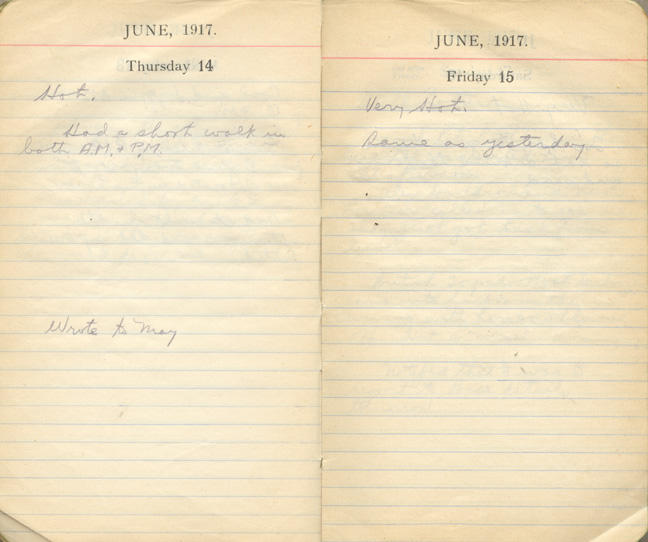 JUNE, 1917.
Thursday 14
Hot.
Had a short walk in
both A.M. & P.M.
Wrote to May
JUNE, 1917.
Friday 15
Very Hot.
Same as yesterday